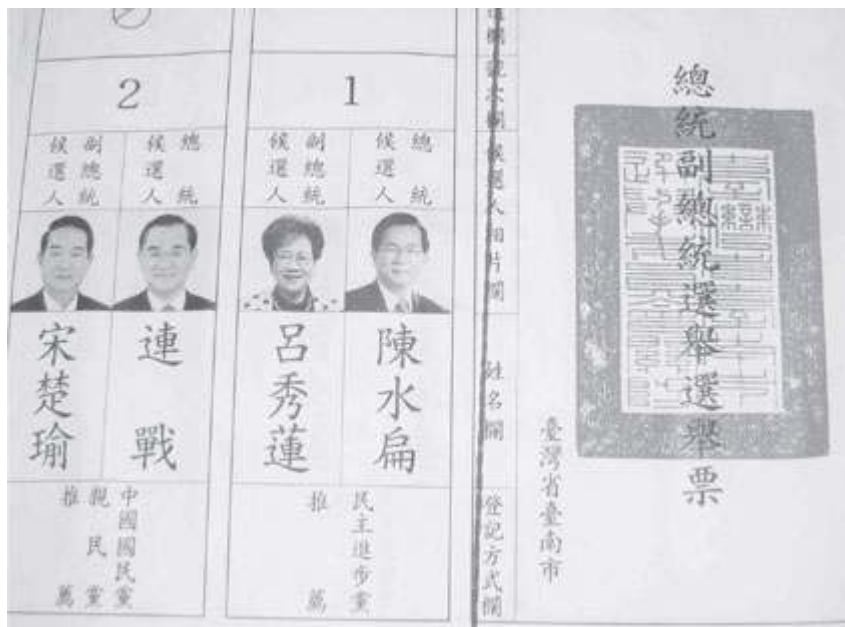 總統副總統選舉選舉票
臺灣省臺南市
號次欄
候選人相片欄
姓名欄
登記方式欄
1
總統候選人
副總統候選人
陳水扁
呂秀蓮
民主進步黨
推薦
2
總統候選人
副總統候選人
連戰
宋楚瑜
中國國民黨
親民黨
推薦